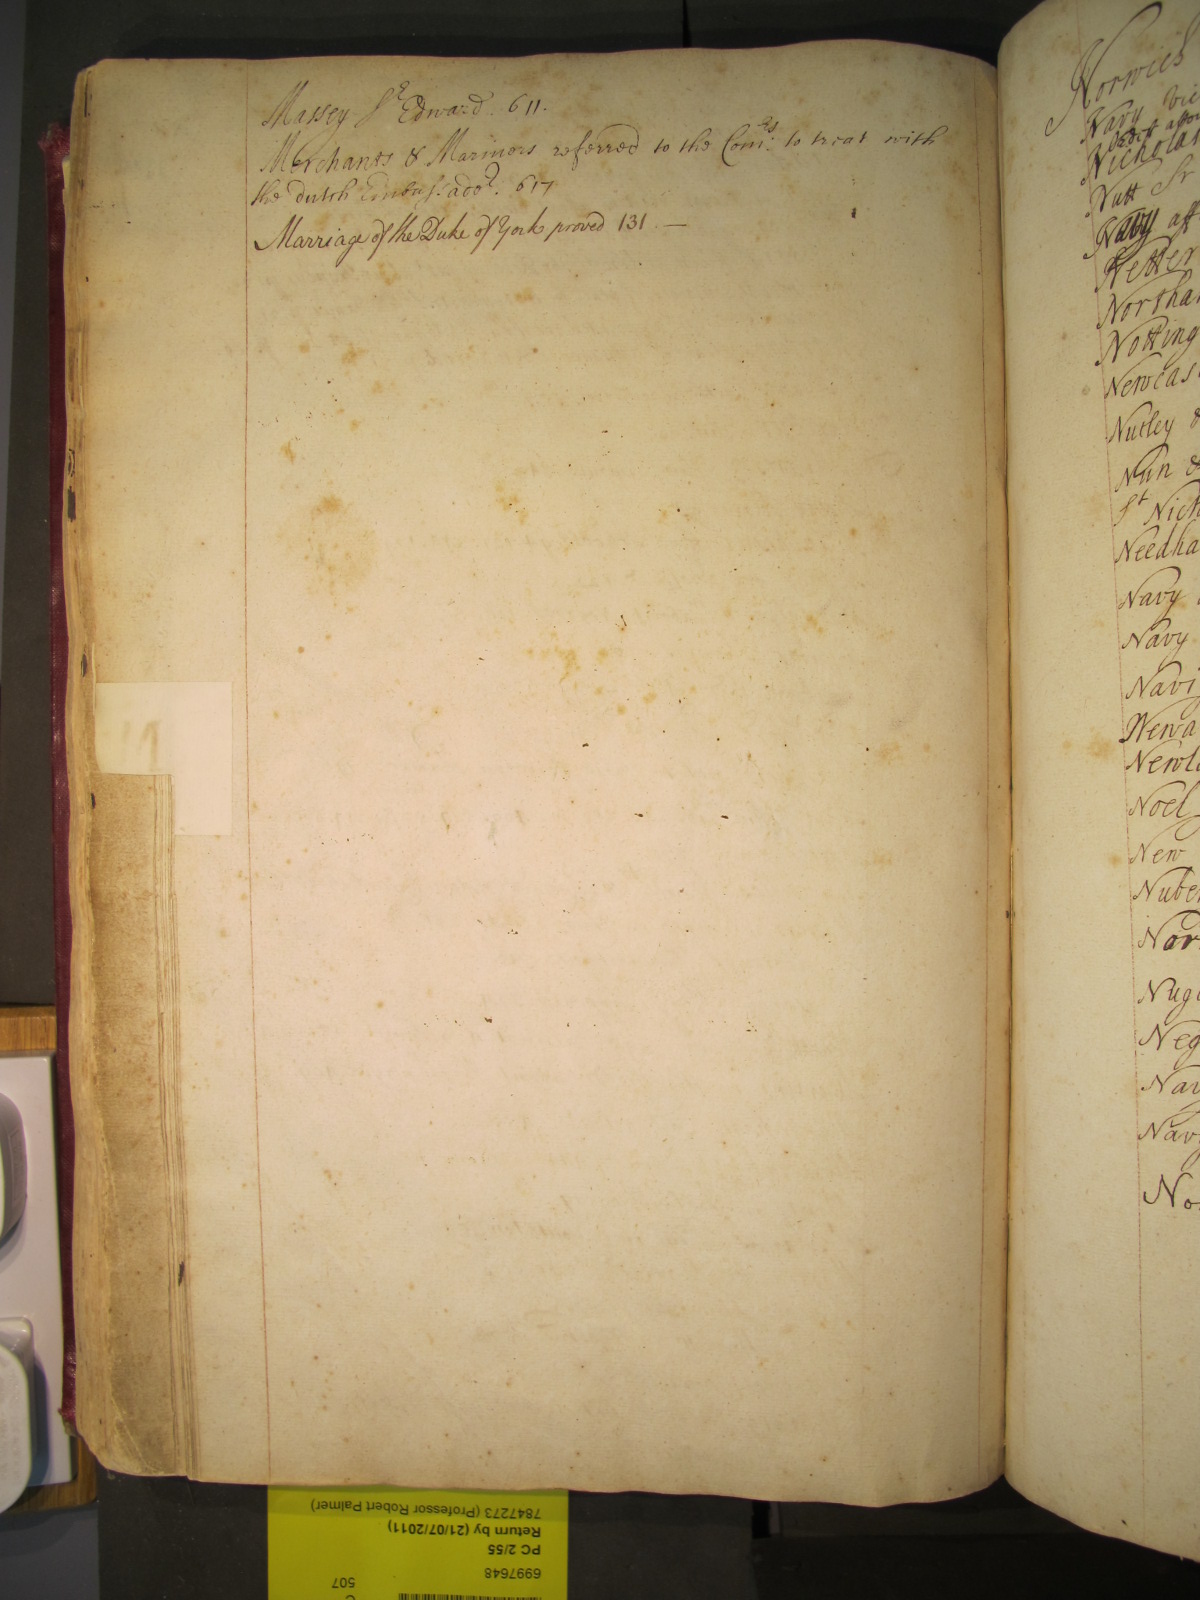 Massey Sr Edward. 611.
Merchants & Mariners referred to the Comrs. to treat with
the dutch Embassador. 617
Marriage of the Duke of York proved 131. —
Norwich
Navy
Nicholas
Nutt Sr
Navy aff
Netter
Northa
Notting
Newcas
Nutley &
Nun &
St Nich
Needha
Navy
Navy
Navi
Newa
Newl
Noel
New
Nube
Nor
Nug
Neg
Nav
Nav
No
7847273 (Professor Robert Palmer)
Return by (21/07/2011)
PC 2/55
6997648
507